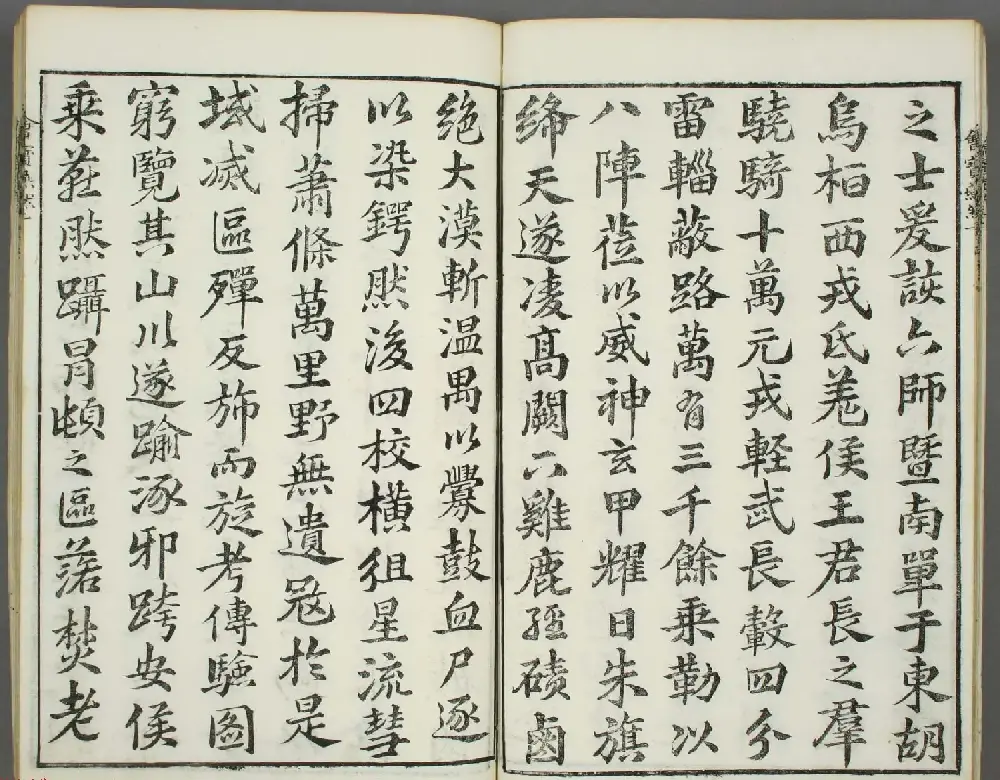 之士爰該六師暨南單于東胡
烏桓西戎氐羌侯王君長之羣
驍騎十萬元戎軽武長轂四分
雷輜蔽路萬有三千餘乗勒以
八陣莅以威神玄甲耀日朱旗
絳天遂凌髙闕下雞鹿經磧鹵
絶大漠斬温禺以釁鼓血尸逐
以染鍔然後四校橫徂星流彗
掃蕭條萬里野無遺冦於是
域滅區殫反斾而旋考傳驗图
窮覽其山川遂踰涿邪跨安侯
乗燕然躡冒頓之區落焚老